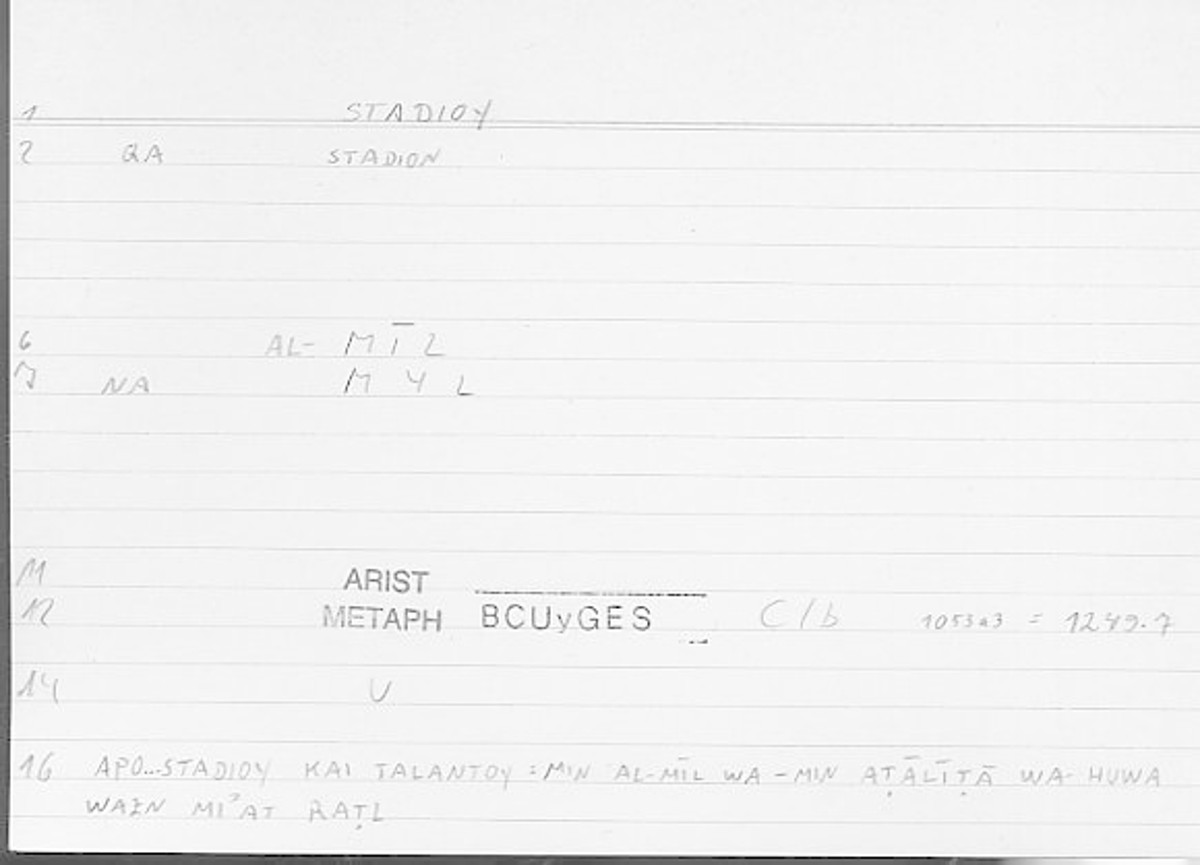 1 STADIOY
2 QA STADION
6 AL- MĪL
7 NA M Y L
11 ARIST
12 METAPH BCUyGES C/b 1053a3 = 1249.7
14 U
16 APO...STADIOY KAI TALANTOY : MIN AL-MĪL WA-MIN AṬĀLĪṬĀ WA-HUWA
WAZN MIʾAT RAṬL